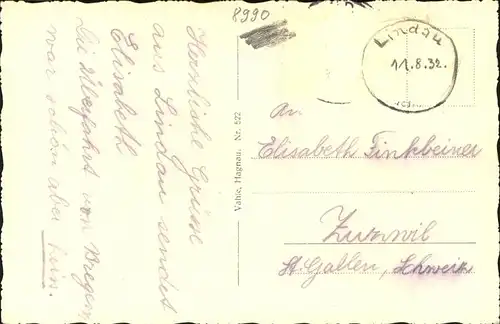 8990
Lindau
11.8.32.
An
Elisabeth Finkbeiner
Zuzwil
St. Gallen, Schweiz
Valtre, Hagnau. Nr. 522
Herrliche Grüsse
aus Lindau sendet
Elisabeth
Die Überfahrt von Bregenz
war schön aber